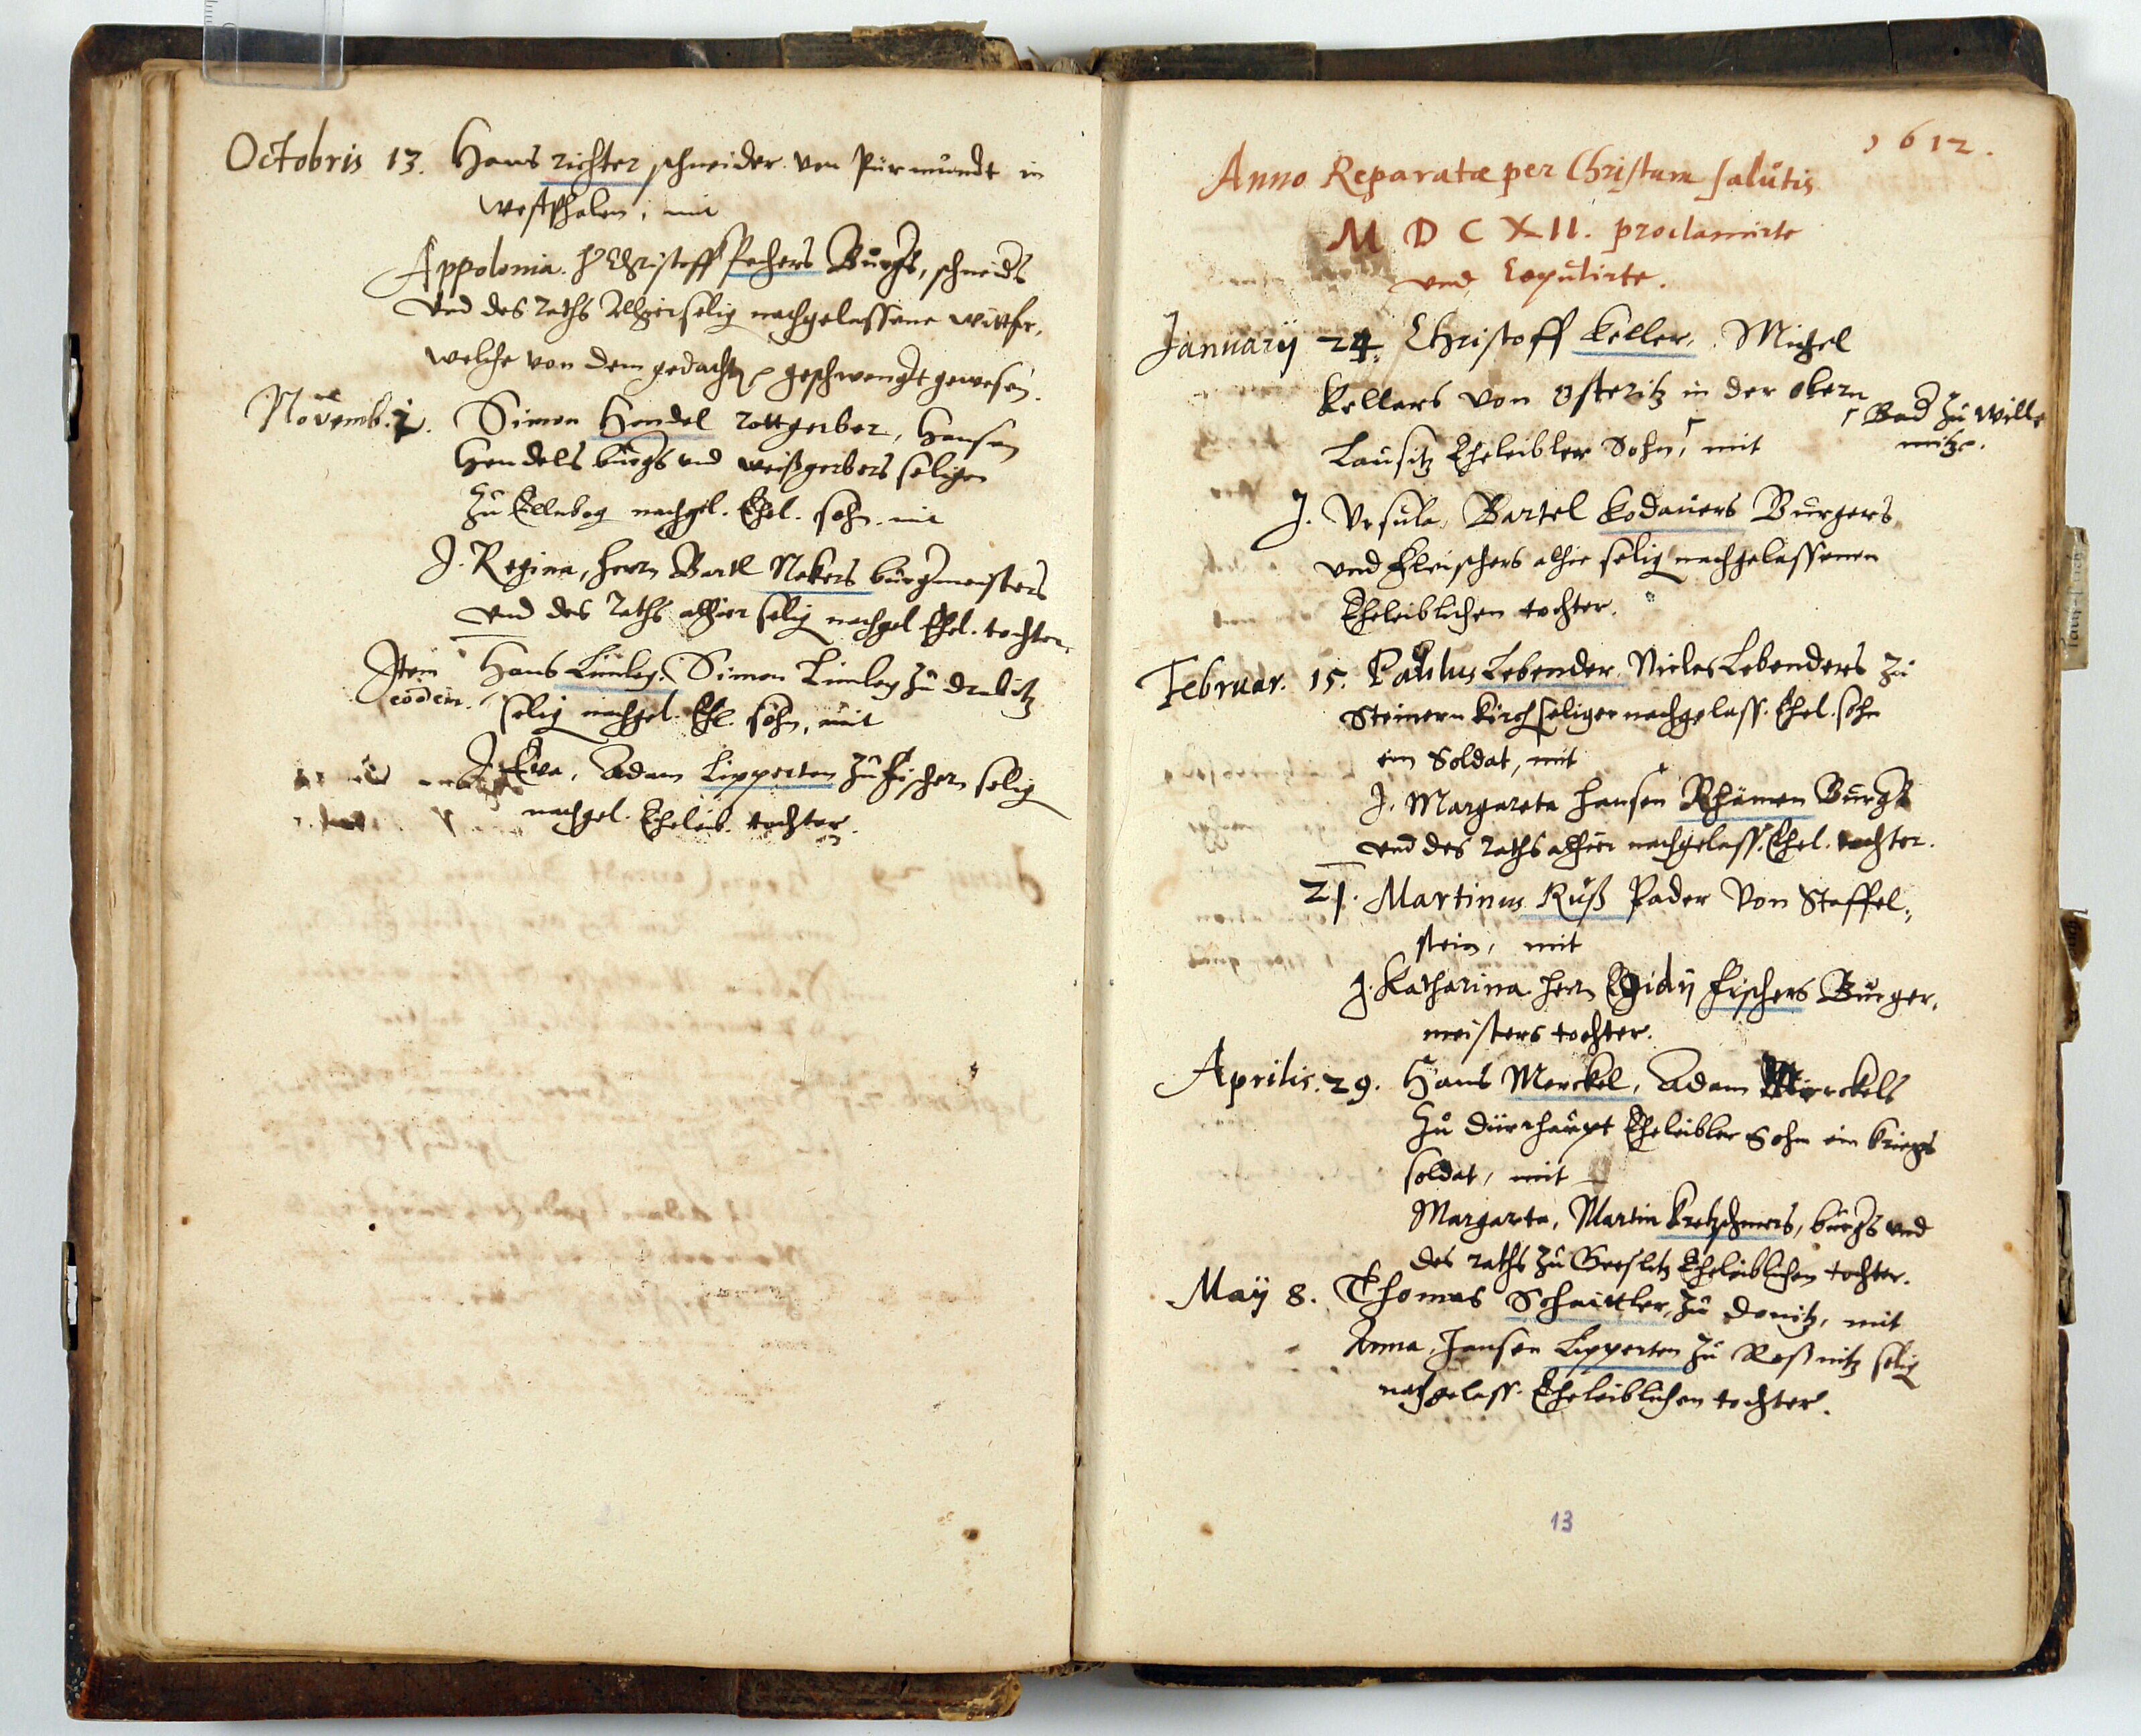 Octobris 13. Hans richter schneider von Pürmundt in
westphalen, mit
Appolonia. H Christoff Pechers Burgers, schneiders
und des raths Alhier selig nachgelassene wittfr.
welche von dem gedachten geschwengt gewesen.
Novemb. 1. Simon Hendel rottgerber, Hansen
Hendels burgers und weißgerbers seligen
zu Ellnbog nachgel. Ehel. sohn. mit
J. Regina, herrn Bartl Nekers burgmeisters
und des raths alhier selig nachgel Ehel. tochter.
Item eodem. Hans Limley, Simon Limley zu dralitz
selig nachgel. Ehl. sohn, mit
J. Eva, Adam Lipperten zu Fischern selig
nachgel. Eheleib. tochter.
1612.
Anno Reparatæ per Christum salutis
M D C XII. proclamirte
und Copulirte.
Januarÿ 24. Christoff Keller, Michel
Kellers von Osteritz in der obern
Lausitz Eheleibler Sohn, mit
Bad zu Wille
mitz.
J. Ursula, Bartel Kodauers Burgers
und fleischers alhie selig nachgelassenen
Eheleiblichen tochter.
Februar. 15. Paulus Lebender, Nicles Lebenders zu
Steinern Kirch seligen nachgelass. Ehel. sohn
ein Soldat, mit
J. Margareta Hansen Rhämen Burgers
und des raths alhier nachgelass. Ehel. tochter.
21. Martinus Ruß Pader von Staffel,
stein, mit
J. Katharina herrn Egidÿ Fischers Burger,
meisters tochter.
Aprilis. 29. Hans Merckel, Adam Merckels
zu dürnhaupt Eheleibler Sohn ein kriegs
soldat, mit
Margareta, Martin Kretzschmers, burgers und
des raths zu Greslitz Eheleiblichen tochter.
Maÿ 8. Thomas Schaittler, zu donitz, mit
Anna, Hansen Lipperten zu Roßnitz selig
nachgelass. Eheleiblichen tochter.
13